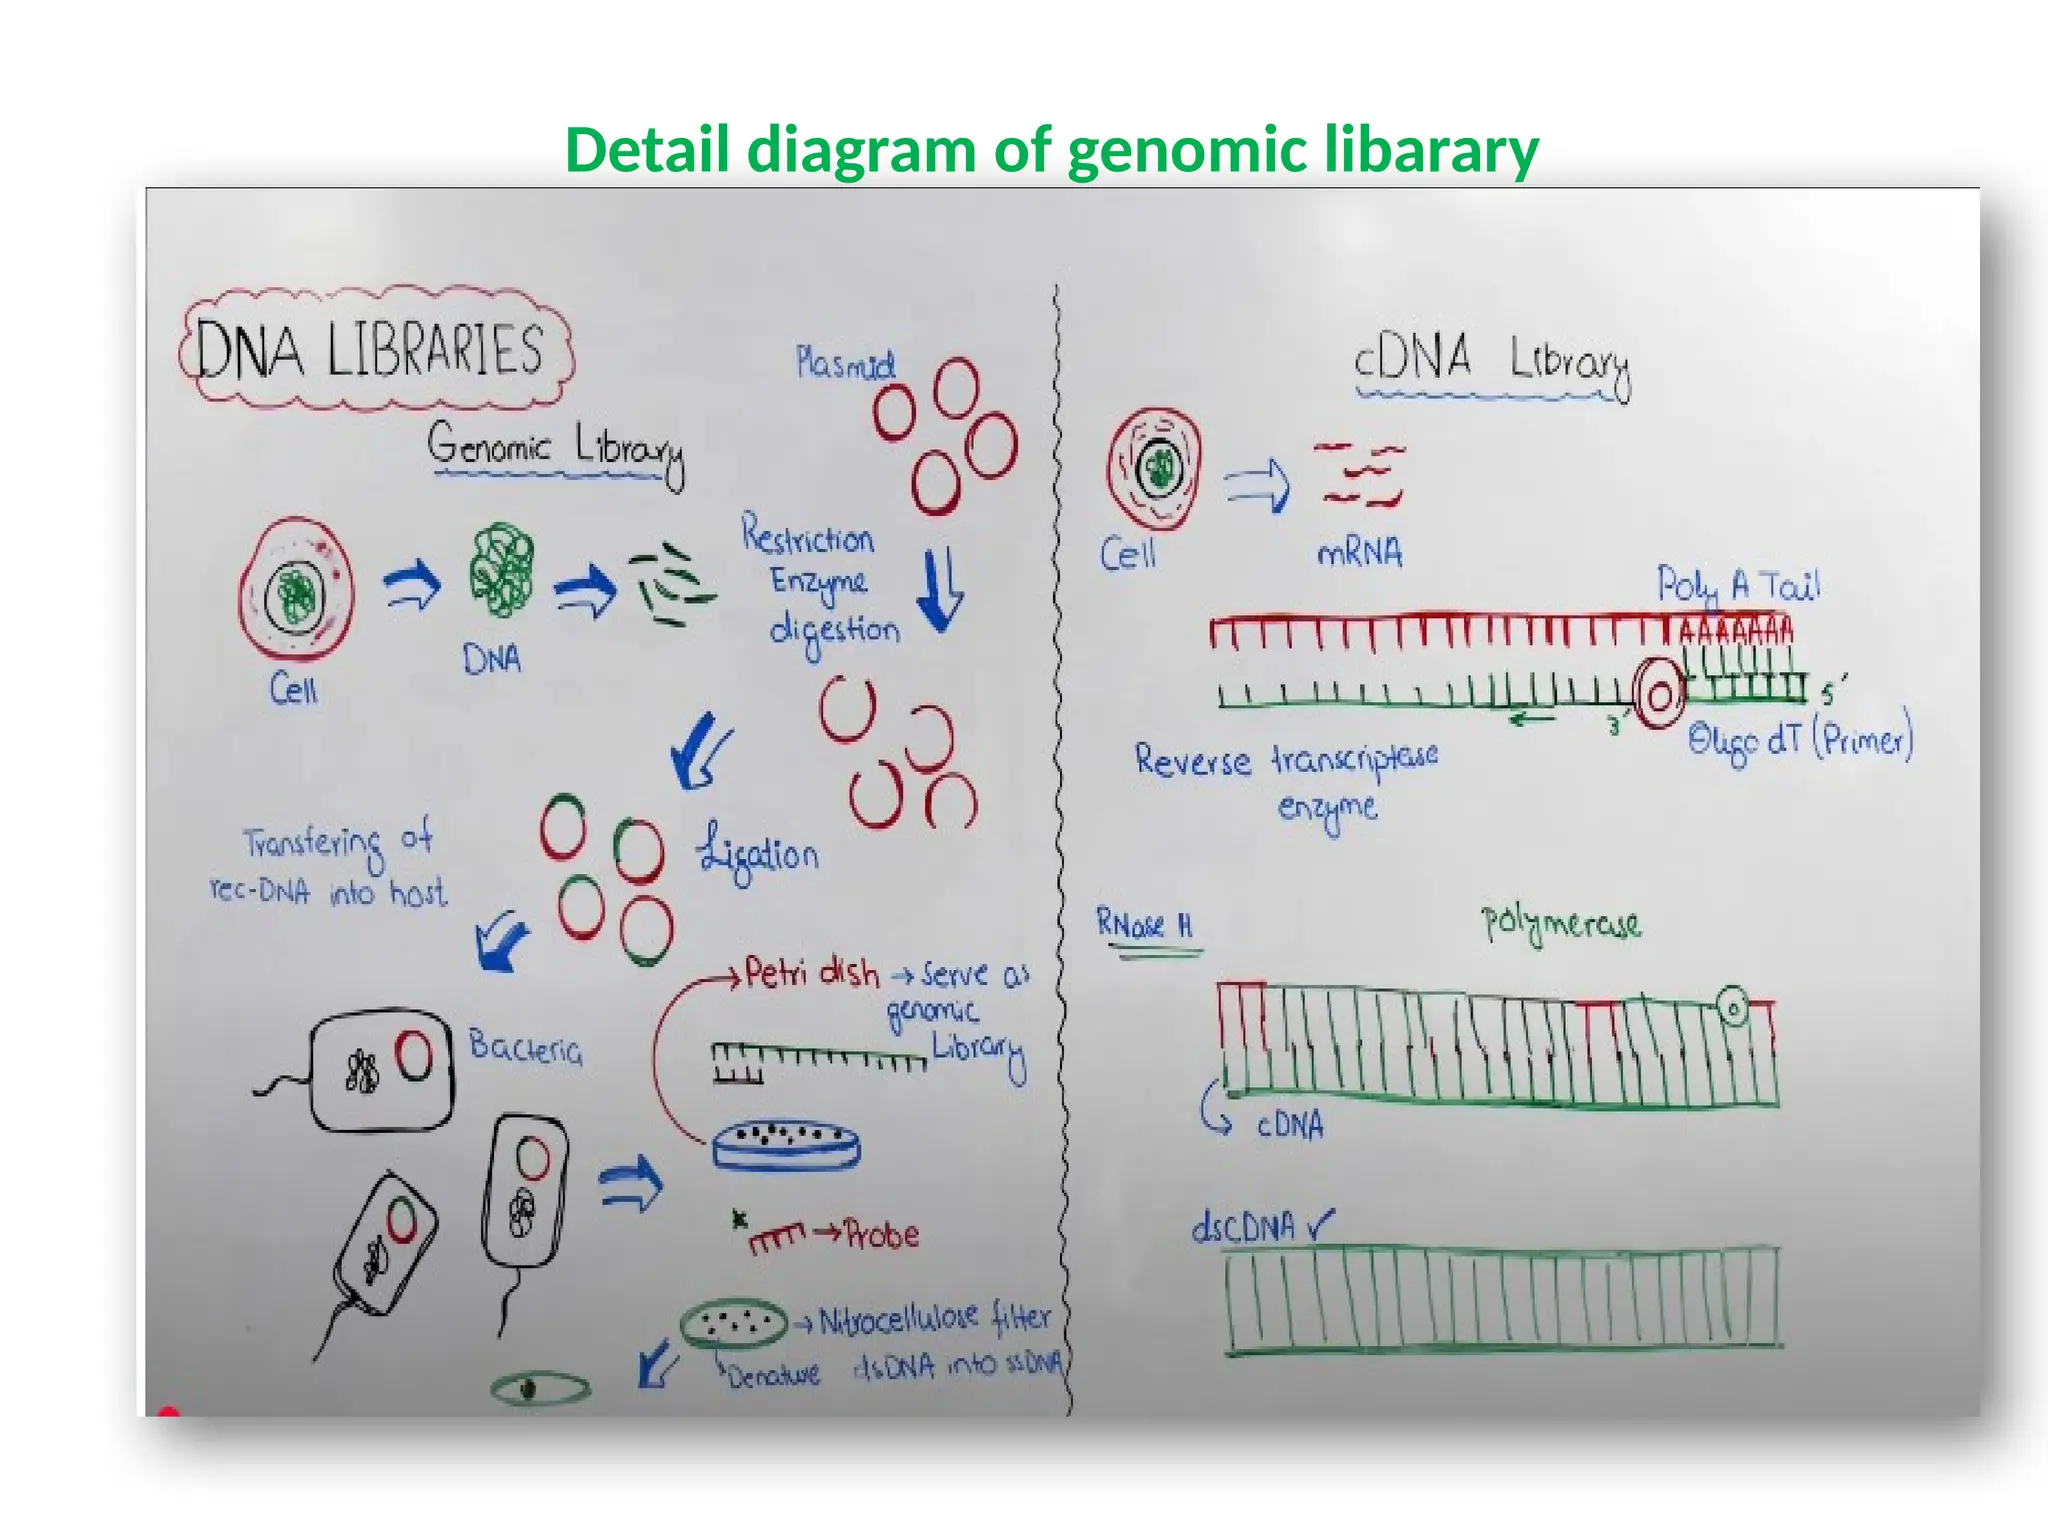 Detail diagram of genomic libarary
DNA LIBRARIES
Genomic Library
Plasmid
Cell
DNA
Restriction
Enzyme
digestion
Ligation
Transfering of
rec-DNA into host
Bacteria
Petri dish → Serve as
genomic
Library
* → Probe
→ Nitrocellulose filter
Denature dsDNA into ssDNA
cDNA Library
Cell
mRNA
Poly A Tail
AAAAAAA
3′
5′
Oligo dT (Primer)
Reverse transcriptase
enzyme
RNase H
Polymerase
cDNA
dsCDNA ✓